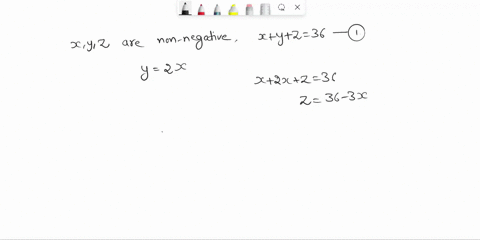 x,y,z are non-negative. x+y+z=36 — ①
y=2x
x+2x+z=36
z=36-3x